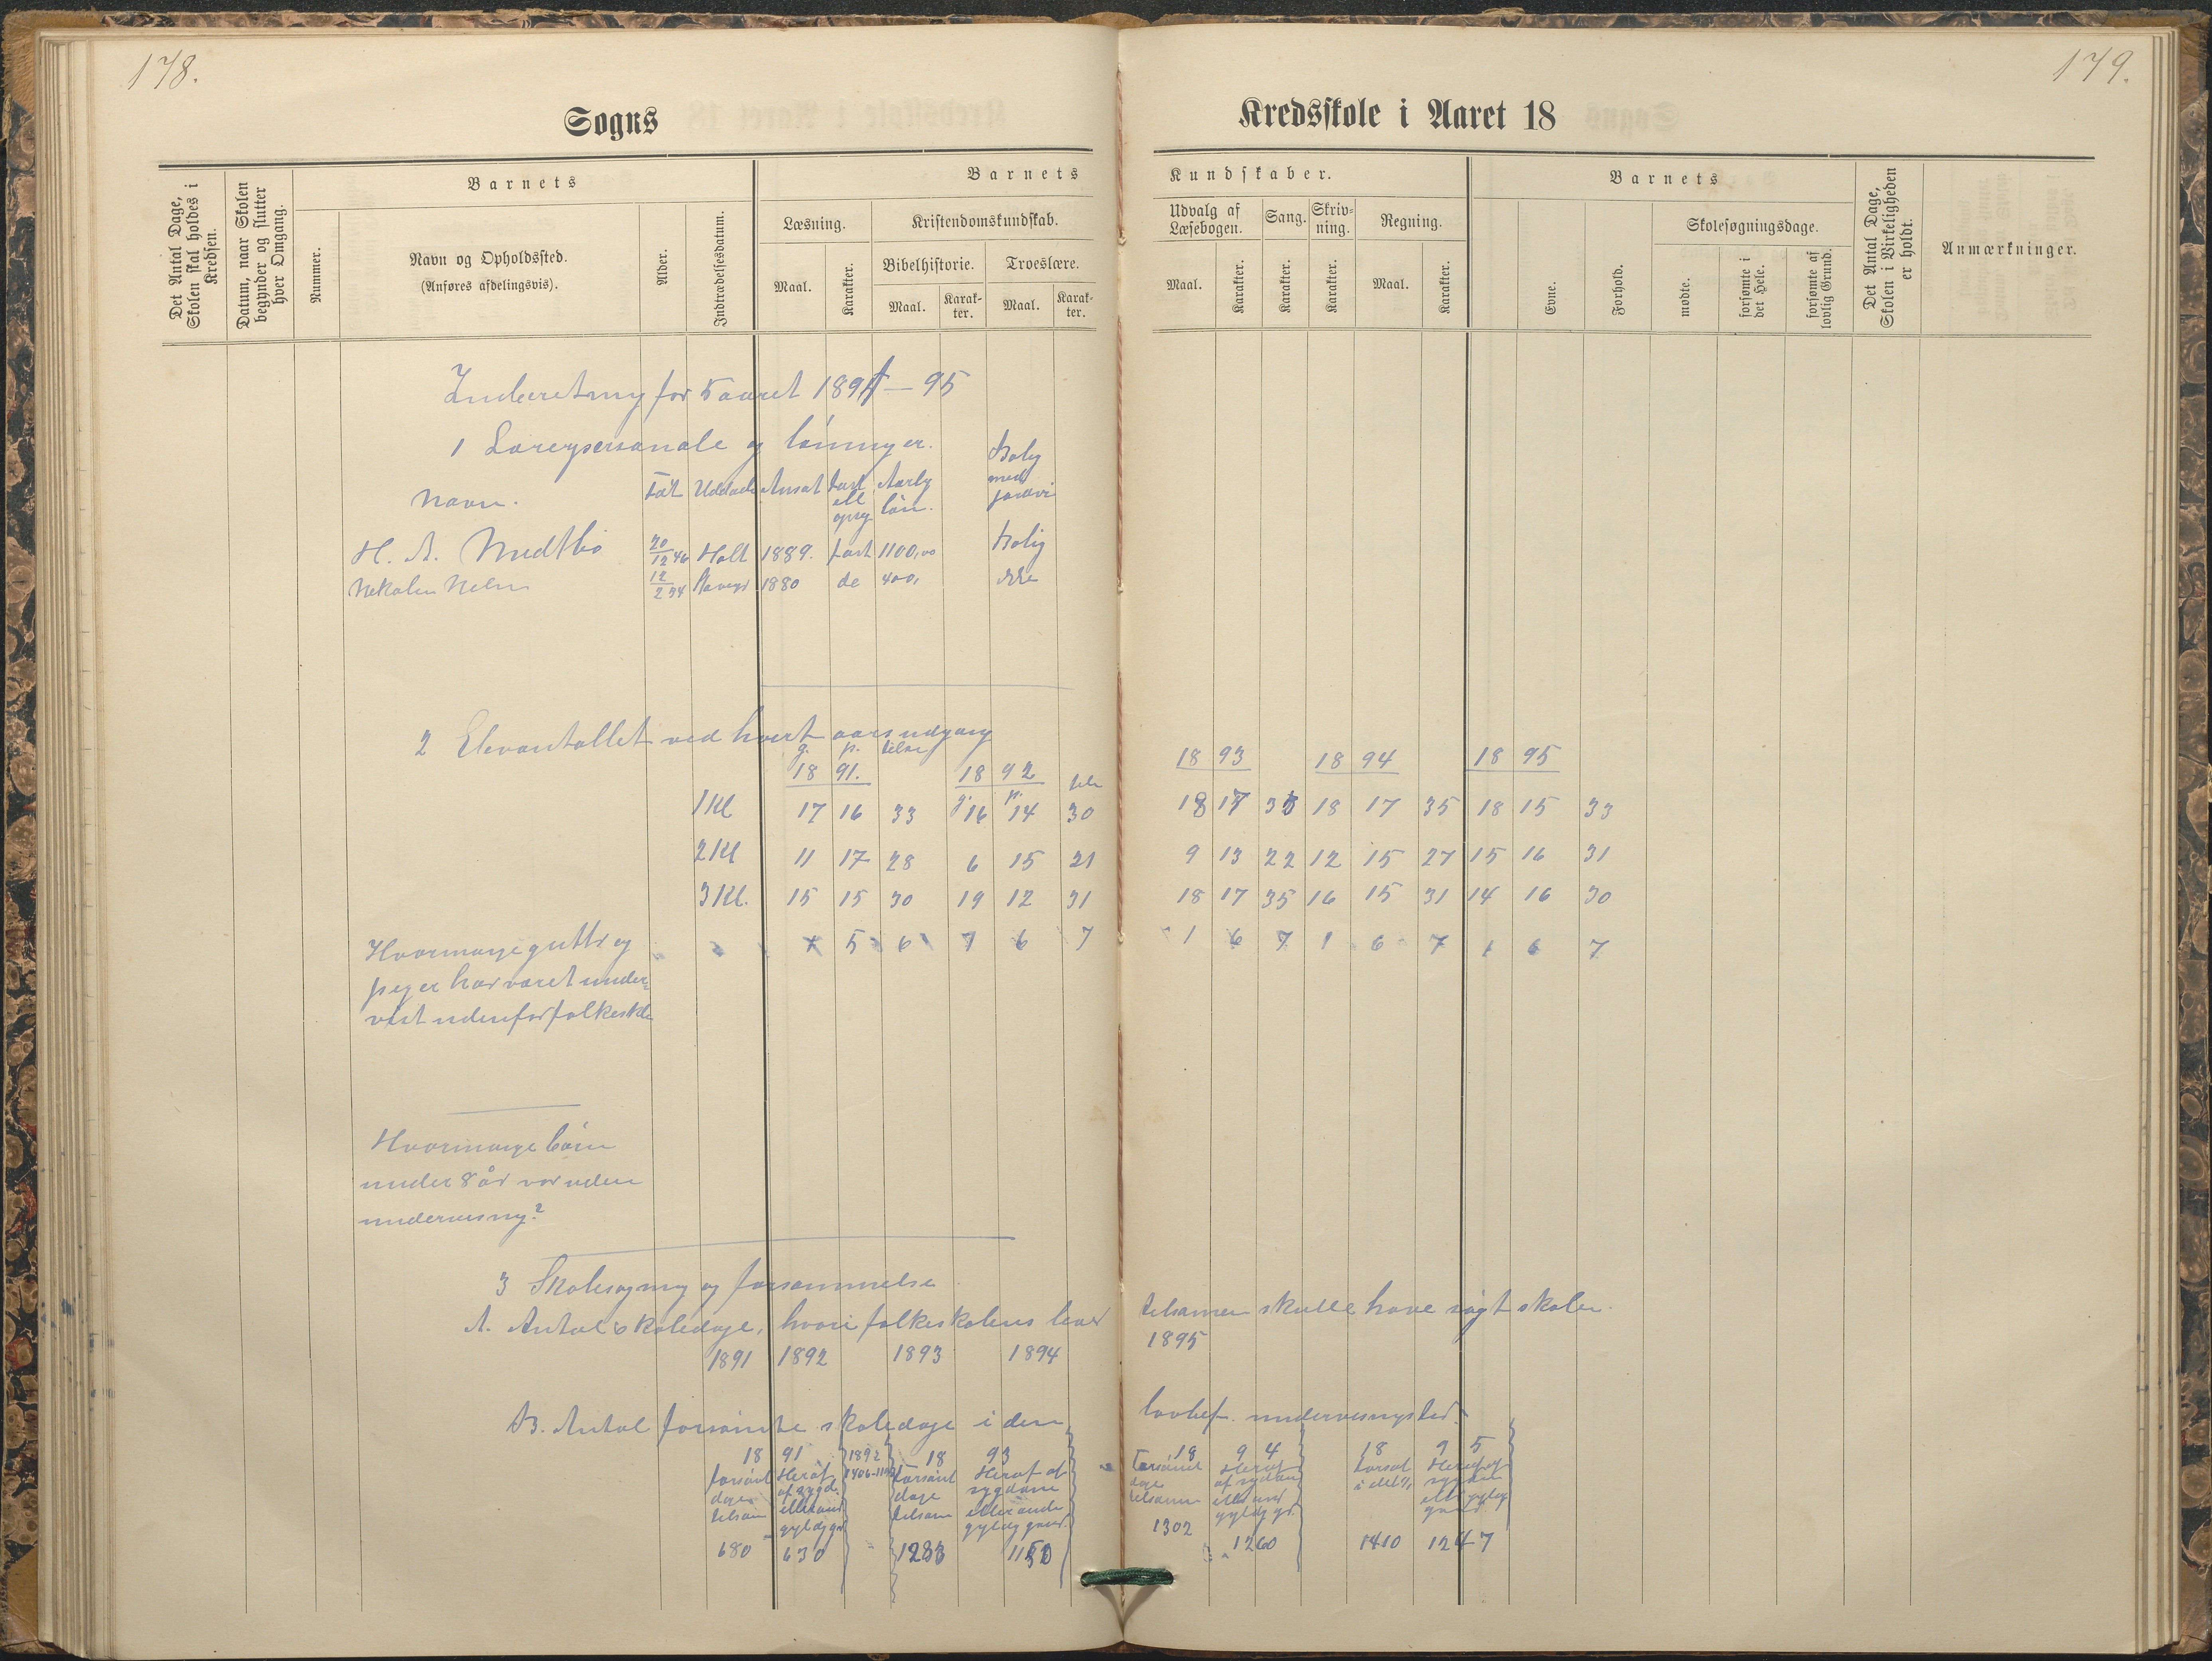 178.
179.
Sogns
Kredsskole i Aaret 18
Det Antal Dage, Skolen skal holdes i Kredsen.
Datum, naar Skolen begynder og slutter hver Omgang.
Barnets
Nummer.
Navn og Opholdssted.
(Anføres afdelingsvis).
Alder.
Indtrædelsesdatum.
Barnets
Læsning.
Kristendomskundskab.
Maal.
Karakter.
Bibelhistorie.
Troeslære.
Maal.
Karakter.
Maal.
Karakter.
Kundskaber.
Udvalg af Læsebogen.
Sang.
Skrivning.
Regning.
Maal.
Karakter.
Karakter.
Karakter.
Maal.
Karakter.
Barnets
Evne.
Forhold.
Skolesøgningsdage.
mødte.
forsømte i det Hele.
forsømte af lovlig Grund.
Det Antal Dage, Skolen i Virkeligheden er holdt.
Anmærkninger.
Indberetning for 5 aaret 1891 — 95
1 Lærerpersonale og lønninger.
Navn. Født Uddan Ansat fast ell opsig Aarlig løn. Bolig med
H. A. 20/12 46 Holt 1889. fast 1100,00 bolig
Nikolai Niels 12/2 34 1880 do 400, ikke
2 Elevantallet ved hvert aars udgang
g. p. tilsm
18 91. 18 92 18 93 18 94 18 95
g. p. tils
1 Kl 17 16 33 16 14 30 18 17 35 18 17 35 18 15 33
2 Kl 11 17 28 6 15 21 9 13 22 12 15 27 15 16 31
3 Kl. 15 15 30 19 12 31 18 17 35 16 15 31 14 16 30
Hvormange gutter og 1 5 6 1 6 7 1 6 7 1 6 7 1 6 7
piger har været under-
vist udenfor folkeskole
Hvormange børn
under 8 år var uden
undervisning?
3 Skolesøgning og forsømmelse
A. Antal skoledage, hvori folkeskolens børn tilsammen skulle have søgt skolen.
1891 1892 1893 1894 1895
B. Antal forsømte skoledage i den lovbef. undervisningstid.
18 91 1892 18 93 18 94 18 95
forsømt dage tilsam
Heraf af sygd. eller and gyldig gr
forsømt dage tilsam
Heraf af sygdom eller anden gyldig grund.
Forsømt dage tilsamm
Heraf af sygdom eller and gyldig gr.
680 630 1283 1150 1302 1260 1410 1247